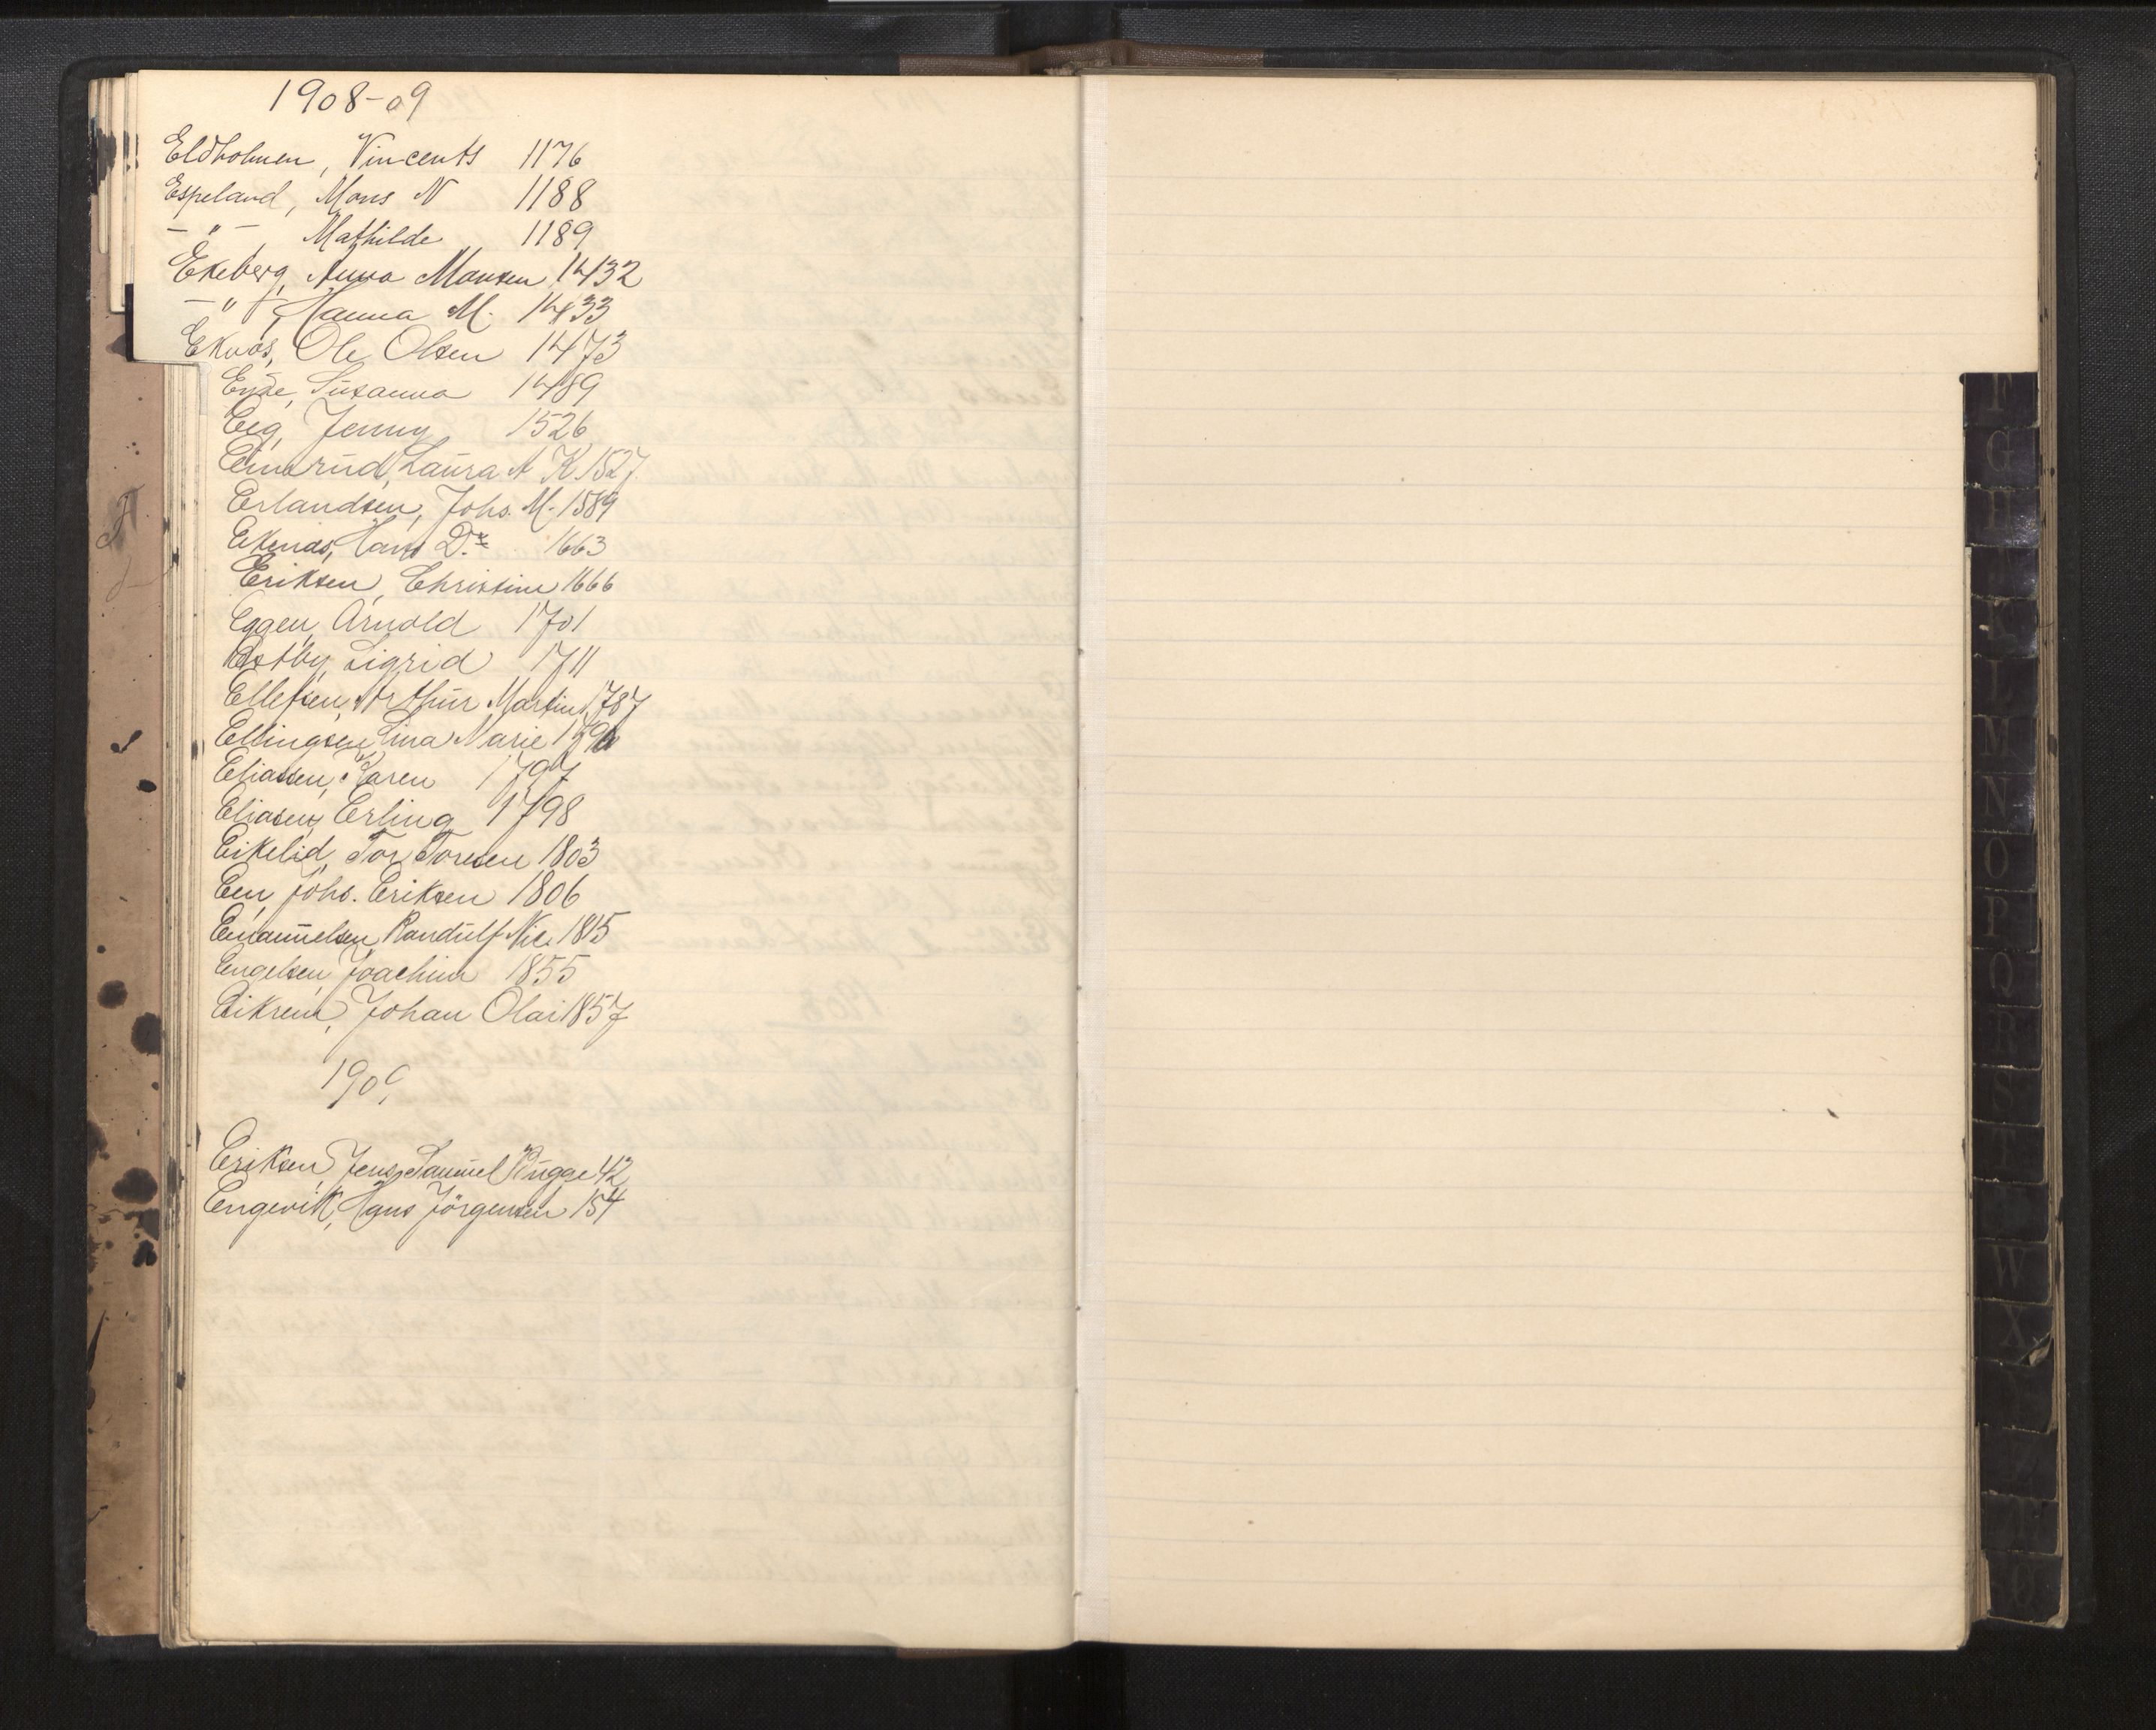 1908-09
Eldholmen, Vincents 1176
Espeland, Mons N 1188
— " — , Mathilde 1189
Ekeberg, Anna Monsen 1432
— " —, Hanna M. 1433
Eknæs, Ole Olsen 1473
Eide, Susanna 1489
Eeg, Jenny 1526
Laura A K 1527
Erlandsen, Johs. M. 1589
Eknæs, Hans D. 1663
Eriksen, Christine 1666
Eggen, Arnold 1701
Østby, Sigrid 1711
Ellefsen, Arthur Martin 1787
Ellingsen, Lina Marie
Eliassen, Karen 1797
Eliasen, Erling 1798
Eikelid, Tor Toresen 1803
Een, Johs. Eriksen 1806
Emanuelsen, Randulf Nic. 1815
Engelsen, Joachim 1855
Eikrem, Johan Olai 1857
1909
Eriksen, Jens Samuel Bugge 42
Engevik, Hans Jörgensen 154
F
G
H
I
K
L
M
N
O
P
Q
R
S
T
W
X
Y
Z
Ø